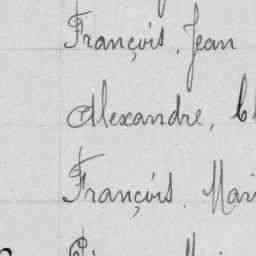 François, Jean
Alexandre,
François. Mari